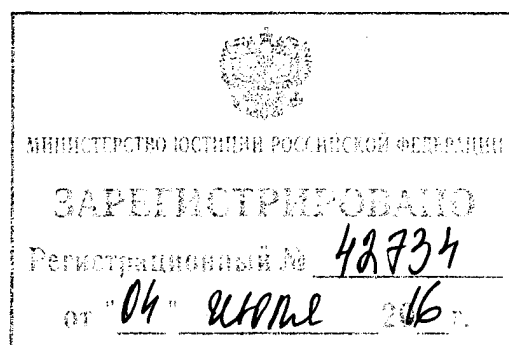 МИНИСТЕРСТВО ЮСТИЦИИ РОССИЙСКОЙ ФЕДЕРАЦИИ
ЗАРЕГИСТРИРОВАНО
Регистрационный № 42734
от "04" июля 2016 г.